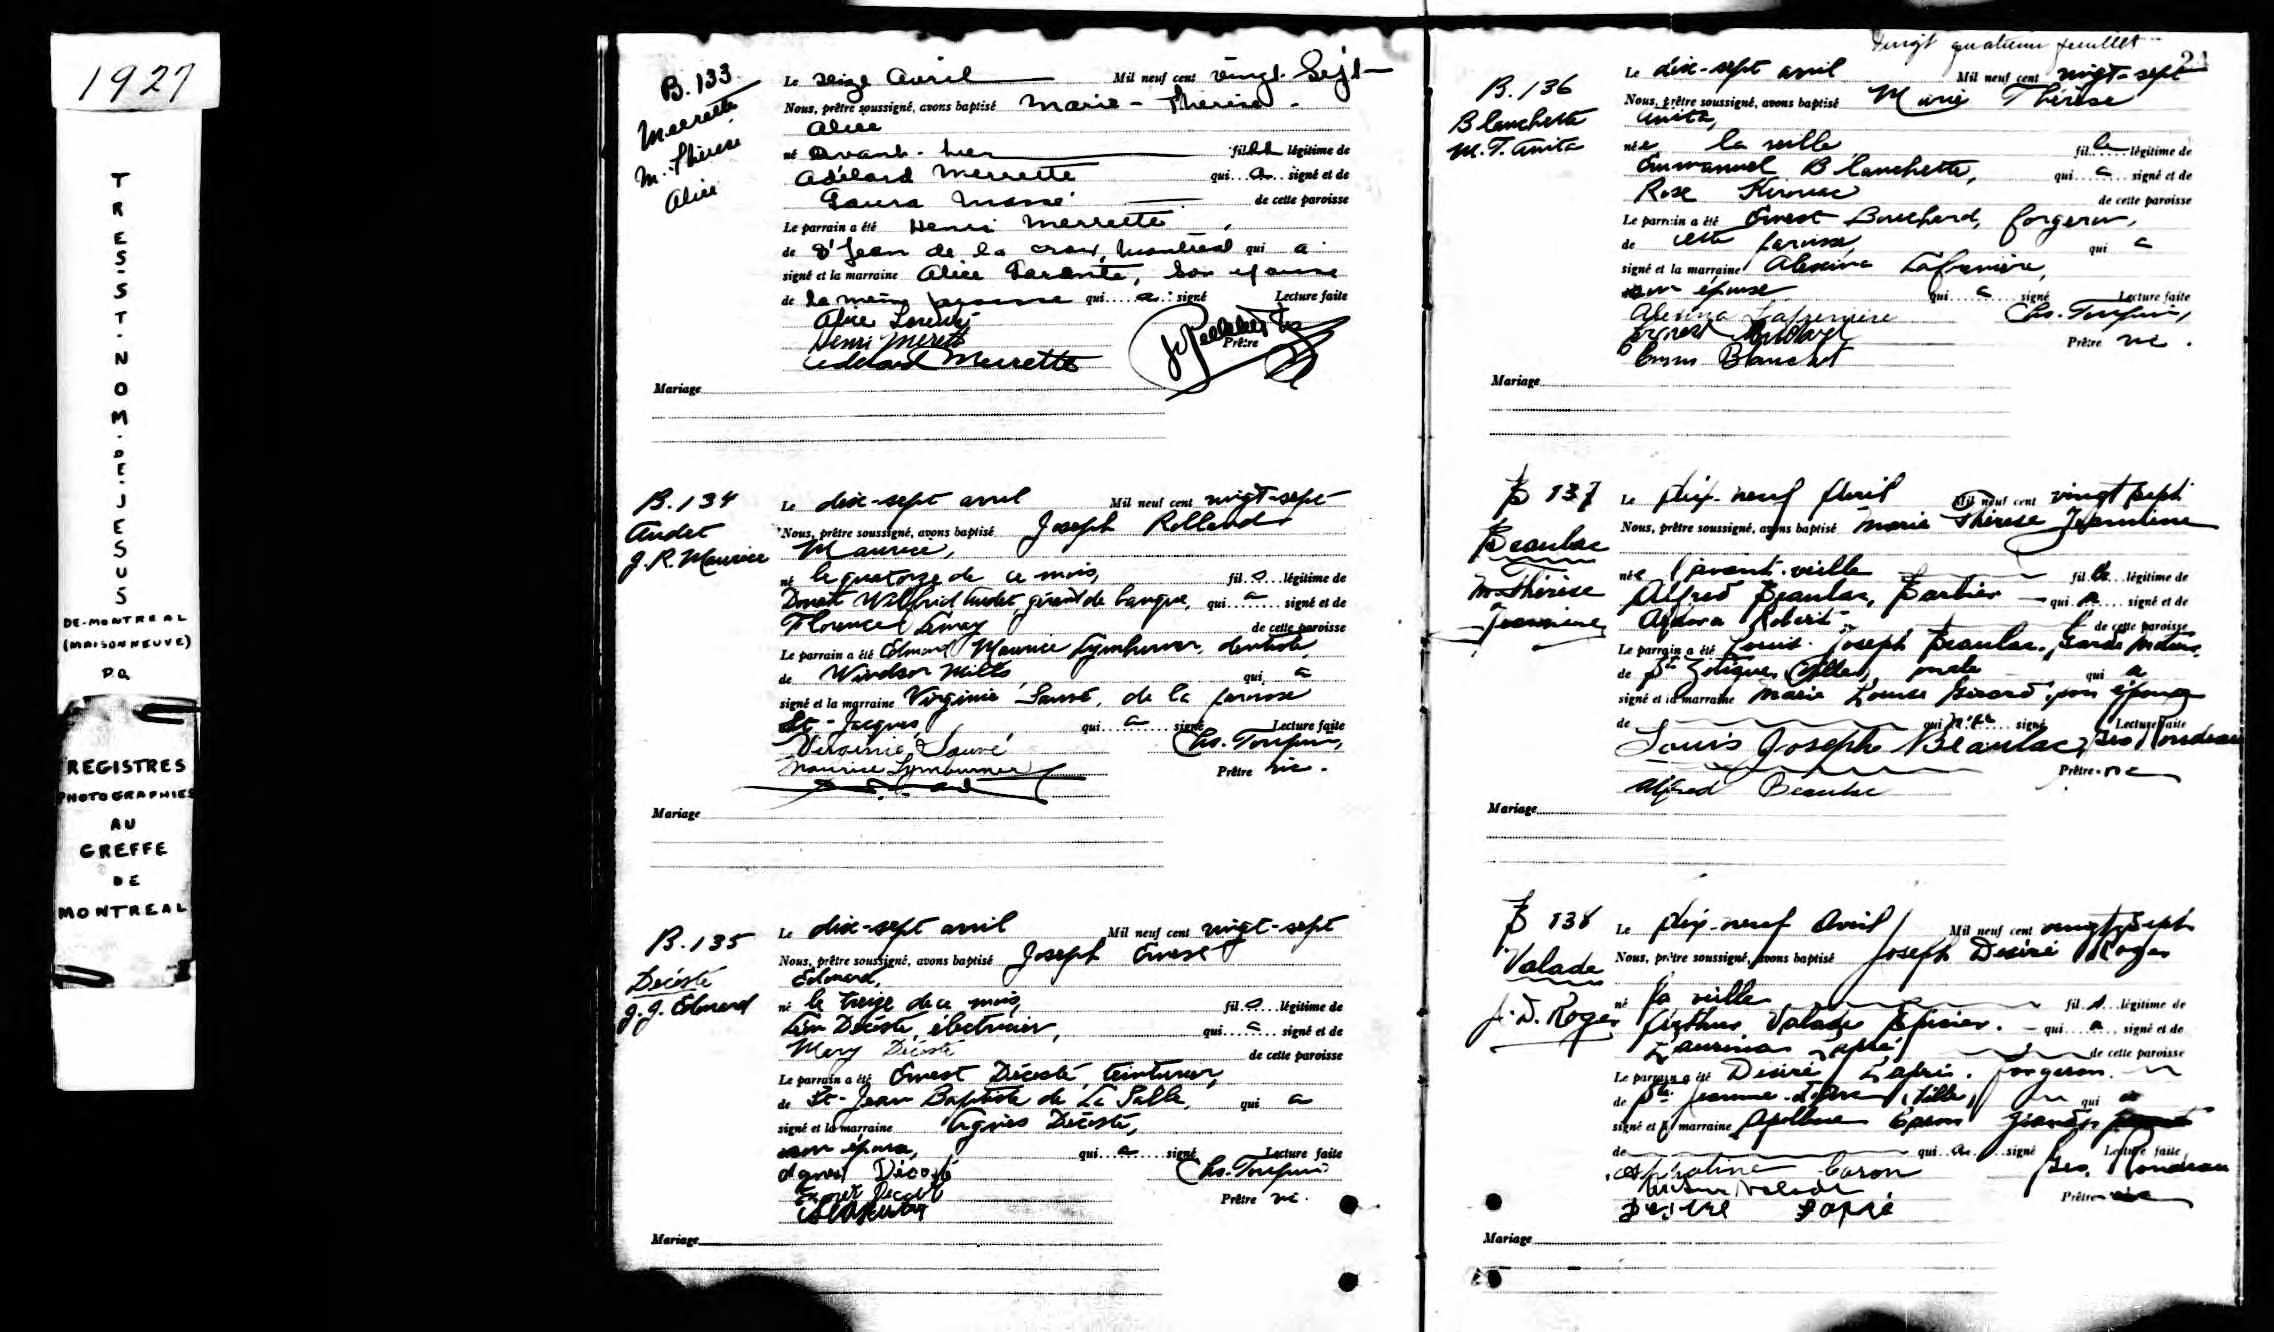 1927
TRES-ST-NOM-DE-JESUS
DE-MONTREAL
(MAISONNEUVE)
P.Q.
REGISTRES
PHOTOGRAPHIES
AU
GREFFE
DE
MONTREAL
B.133
Merrette
M. Thérèse
Alice
Le seize Avril Mil neuf cent vingt-Sept
Nous, prêtre soussigné, avons baptisé Marie-Thérèse-
Alice
né avant-hier fille légitime de
Adélard Merrette qui a signé et de
Laura Massé de cette paroisse
Le parrain a été Henri Merrette,
de St Jean de la Croix, Montréal qui a
signé et la marraine Alice, son épouse
de la même paroisse qui a signé Lecture faite
Alice
Henri Merette
Adélard Merrette
Prêtre
Mariage
B.134
Audet
J.R. Maurice
Le dix-sept avril Mil neuf cent vingt-sept
Nous, prêtre soussigné, avons baptisé Joseph Rolland
Maurice,
né le quatorze de ce mois, fils légitime de
Donat Wilfrid Audet, gérant de banque, qui a signé et de
Florence Lemay de cette paroisse
Le parrain a été Edmond Maurice Lymburner, dentiste,
de Windsor Mills qui a
signé et la marraine Virginie Sauvé, de la paroisse
St-Jacques, qui a signé Lecture faite
Virginie Sauvé Chs. Toupin,
Maurice Lymburner
Prêtre vic.
Mariage
B.135
Décoste
J.J. Edouard
Le dix-sept avril Mil neuf cent vingt-sept
Nous, prêtre soussigné, avons baptisé Joseph Ernest
Edouard,
né le treize de ce mois, fils légitime de
Léon Décoste, électricien, qui a signé et de
Mary Décoste de cette paroisse
Le parrain a été Ernest Décoste, teinturier,
de St-Jean Baptiste de La Salle, qui a
signé et la marraine Agnès Décoste,
son épouse, qui a signé Lecture faite
Agnes Décosté Chs. Toupin
Ernest Decoste
Prêtre vic.
Mariage
Vingt quatrième feuillet
24
B.136
Blanchette
M.T. Anita
Le dix-sept avril Mil neuf cent vingt-sept
Nous, prêtre soussigné, avons baptisé Marie Thérèse
Anita,
née la veille, fille légitime de
Emmanuel Blanchette, qui a signé et de
Rose Kirouac de cette paroisse
Le parrain a été Ernest Bouchard, forgeron,
de cette paroisse, qui a
signé et la marraine Alexina Lafrenière,
son épouse qui a signé Lecture faite
Alexina Lafrenière Chs. Toupin,
Ernest Bouchard
Blanchet
Prêtre vic.
Mariage
B 137
Beaulac
M. Thérèse
Jeannine
Le dix-neuf Avril Mil neuf cent vingt sept
Nous, prêtre soussigné, avons baptisé Marie Thérèse Jeannine
née l'avant-veille fille légitime de
Alfred Beaulac, Barbier qui a signé et de
Aldora Robert de cette paroisse
Le parrain a été Louis Joseph Beaulac, Garde moteur,
de St Zotique, (Ville), oncle qui a
signé et la marraine Marie Louise Girard, son épouse
de qui n'a signé Lecture faite
Louis Joseph Beaulac Geo. Rondeau
Prêtre vic
Alfred Beaulac
Mariage
B 138
Valade
J.D. Roger
Le dix-neuf Avril Mil neuf cent vingt sept
Nous, prêtre soussigné, avons baptisé Joseph Desiré Roger
né la veille fils légitime de
Arthur Valade Epicier. qui a signé et de
Laurina Lapré de cette paroisse
Le parrain a été Desiré Lapré. forgeron.
de Ste Jeanne-d'Arc (Ville) qui a
signé et la marraine Apolline Caron
de qui a signé Lecture faite
Caron Geo. Rondeau
Valade
Prêtre vic
Desire Lapré
Mariage